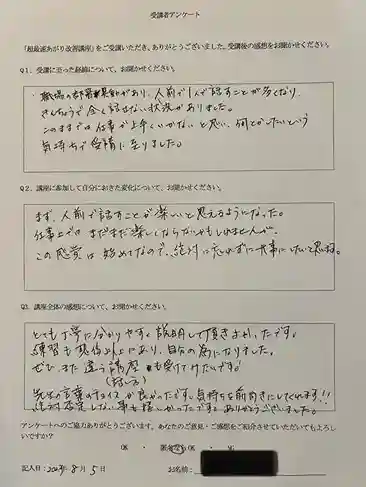 受講者アンケート
「超最速あがり改善講座」をご受講いただき、ありがとうございました。受講後の感想をお聞かせください。
Q1. 受講に至った経緯について、お聞かせください。
・職場の部署異動があり、人前で1人で話すことが多くなり、
きんちょうで全く話せない状況がありました。
このままでは仕事が上手くいかないと思い、何とかしたいという
気持ちで受講に至りました。
Q2. 講座に参加して自分におきた変化について、お聞かせください。
まず、人前で話すことが楽しいと思えるようになった。
仕事上ではまだまだ楽しくならないかもしれませんが、
この感覚は始めてなので、絶対に忘れずに大事にしたいと思います。
Q3. 講座全体の感想について、お聞かせください。
とても丁寧に分かりやすく説明して頂きよかったです。
練習も想像以上にあり、自分の為になりました。
ぜひ、また違う講座も受けてみたいです。
先生の言葉のチョイスが良かったです。気持ちを前向きにしてくれます!!
絶対否定しない事も嬉しかったです。ありがとうございました。
アンケートへのご協力ありがとうございます。あなたのご意見・ご感想をご紹介させていただいてもよろしいですか？
OK ・ 匿名ならOK ・ NG
記入日：2023年 8月 5日 お名前：